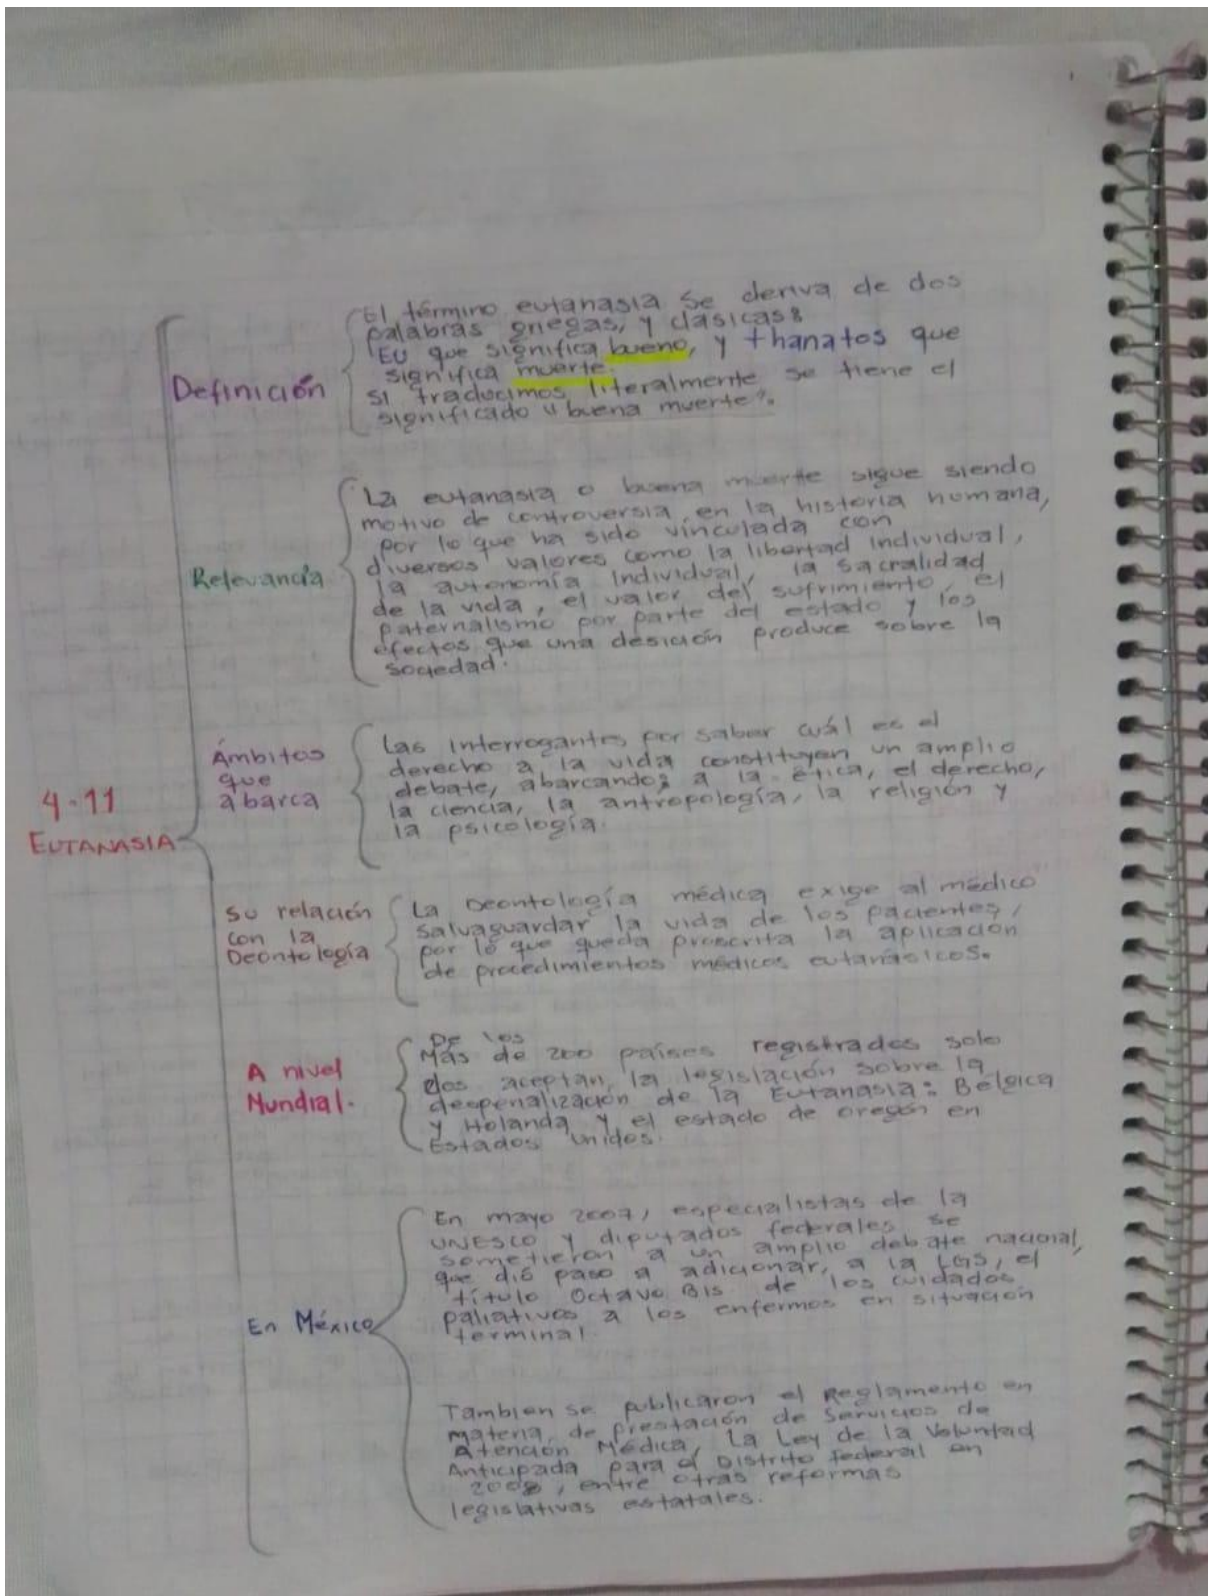 Definición
El término eutanasia se deriva de dos
palabras griegas, y clásicas:
EU que significa bueno, y thanatos que
significa muerte.
si traducimos literalmente se tiene el
significado "buena muerte".
Relevancia
La eutanasia o buena muerte sigue siendo
motivo de controversia en la historia humana,
por lo que ha sido vinculada con
diversos valores como la libertad individual,
la autonomía Individual, la sacralidad
de la vida, el valor del sufrimiento, el
paternalismo por parte del estado y los
efectos que una desición produce sobre la
sociedad.
Ámbitos
que
abarca
Las interrogantes por saber cuál es el
derecho a la vida constituyen un amplio
debate, abarcando: a la ética, el derecho,
la ciencia, la antropología, la religión y
la psicología.
4.11
EUTANASIA
su relación
con la
Deontología
La Deontología médica exige al médico
salvaguardar la vida de los pacientes,
por lo que queda proscrita la aplicación
de procedimientos médicos eutanásicos.
A nivel
Mundial.
De los
Más de 200 países registrados solo
dos aceptan la legislación sobre la
despenalización de la Eutanasia: Bélgica
y Holanda y el estado de oregón en
Estados Unidos.
En México
En mayo 2007, especialistas de la
UNESCO y diputados federales se
sometieron a un amplio debate nacional,
que dió paso a adicionar, a la LGS, el
título Octavo Bis de los cuidados
paliativos a los enfermos en situación
terminal.
Tambien se publicaron el Reglamento en
materia, de prestación de Servicios de
Atención Médica, La Ley de la Voluntad
Anticipada para el Distrito federal en
2008, entre otras reformas
legislativas estatales.